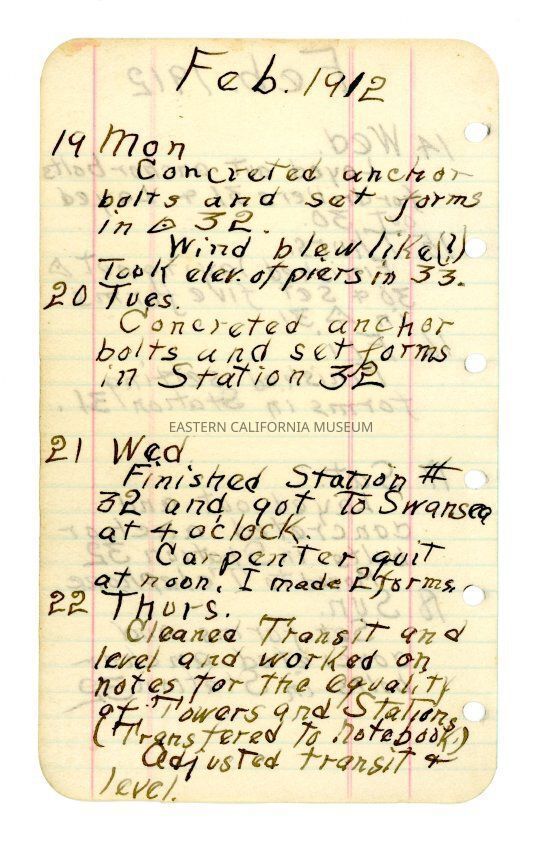 Feb. 1912
19 Mon
Concreted anchor
bolts and set forms
in △ 32.
Wind blew like(!)
Took elev. of piers in 33.
20 Tues.
Concreted anchor
bolts and set forms
in Station 32
EASTERN CALIFORNIA MUSEUM
21 Wed
Finished Station #
32 and got To Swansea
at 4 oclock.
Carpenter quit
at noon. I made 2 forms.
22 Thurs.
Cleaned Transit and
level and worked on
notes for the equality
of Towers and Stations
(Transfered to notebook)
Adjusted transit &
level.